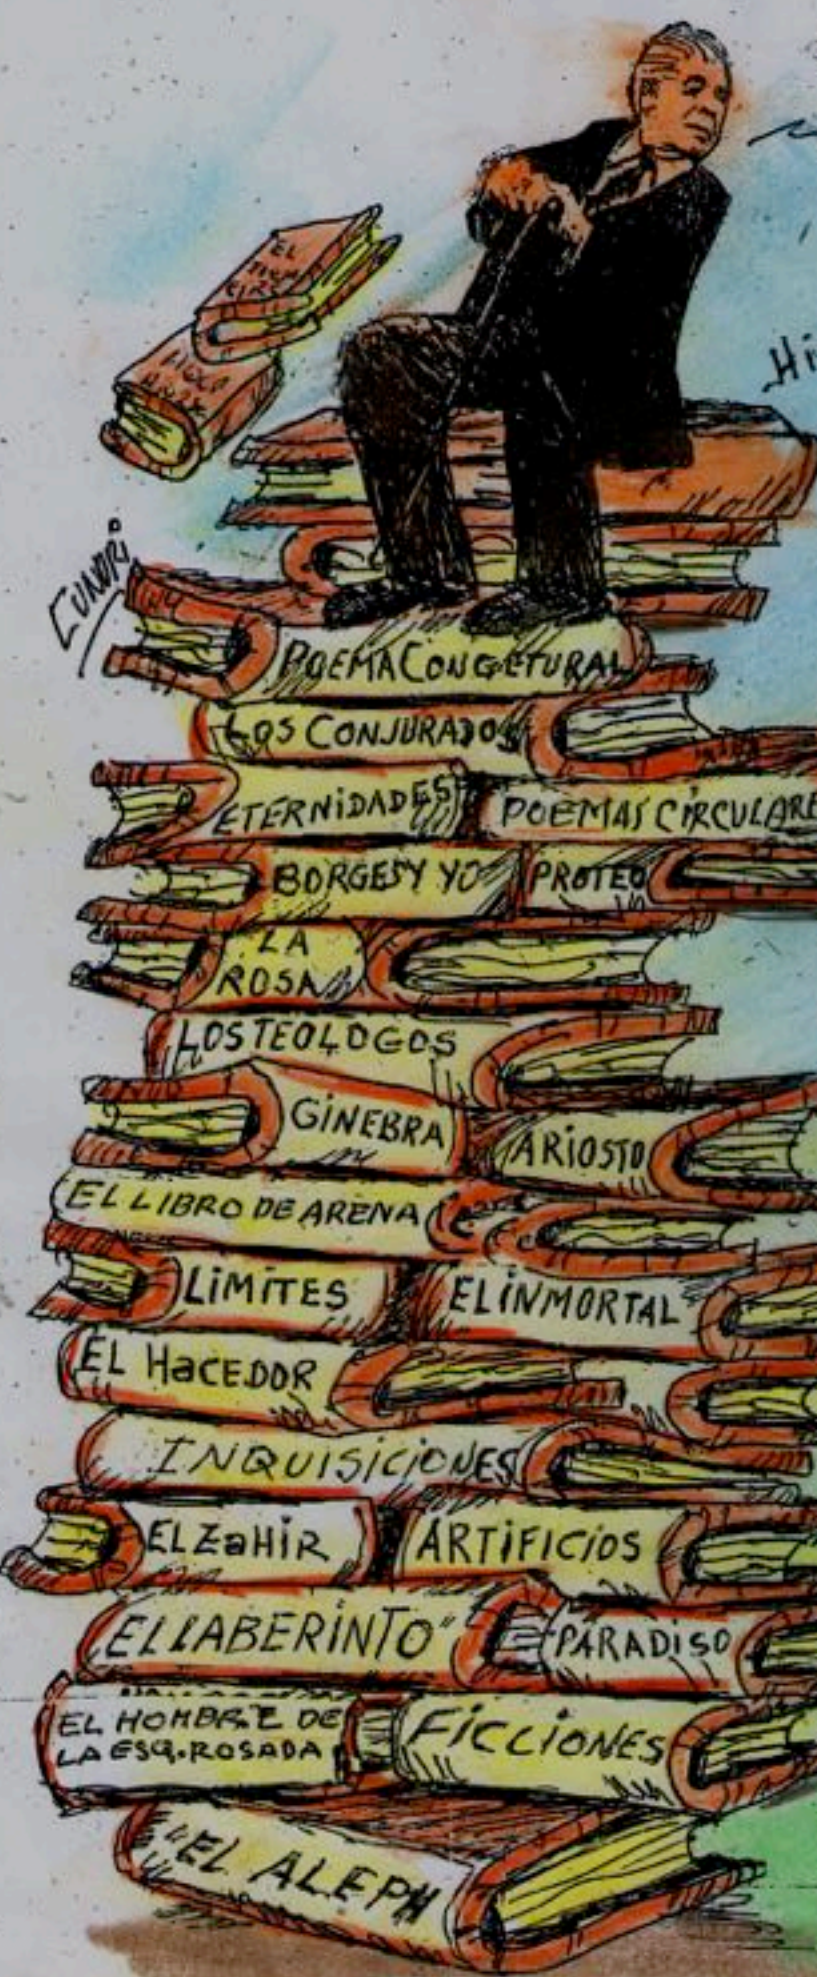 EL
Hi
CUNDRI
POEMA CONGETURAL
LOS CONJURADOS
ETERNiDADES
POEMAS CIRCULARE
BORGES Y YO
PROTEO
LA
ROSA
LOS TEOLOGOS
GiNEBRA
ARiOSTO
EL LIBRO DE ARENA
LiMITES
EL iNMORTAL
EL HaCEDOR
INQUISICIONES
EL ZaHiR
ARTiFICIOS
EL LABERiNTO"
PARADiSO
EL HOMBRE DE
LA ESQ. ROSADA
FiCCIONES
"EL ALEPH